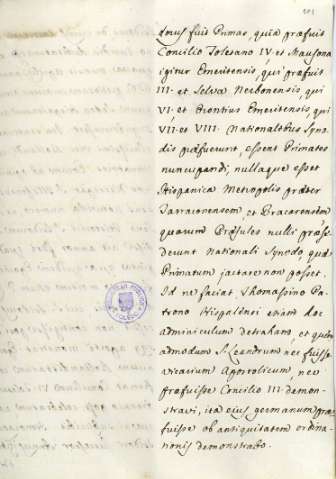 201
dorus fuit Primas, quia præfuit
Concilio Toletano IV. et Mausona
igitur Emeritensis, qui præfuit
III. et Selva Narbonensis, qui
VI. et Orontius Emeritensis, qui
VII. et VIII. Nationalibus Syno-
dis præfuerunt, essent Primates
nuncupandi, nullaque esset
Hispanica Metropolis præter
Tarraconensem, et Bracarensem
quarum Præsules nulli præse-
derunt Nationali Synodo, quæ
Primatum jactare non posset.
Id ne faciat Thomassino Pa-
trono Hispalensi etiam hoc
adminiculum detraham, et quem
admodum S. Leandrum nec fuisse
Vicarium Apostolicum, nec
præfuisse Concilio III. demon-
stravi, ita ejus germanum præ-
fuisse ob antiquitatem ordina-
tionis demonstrabo.